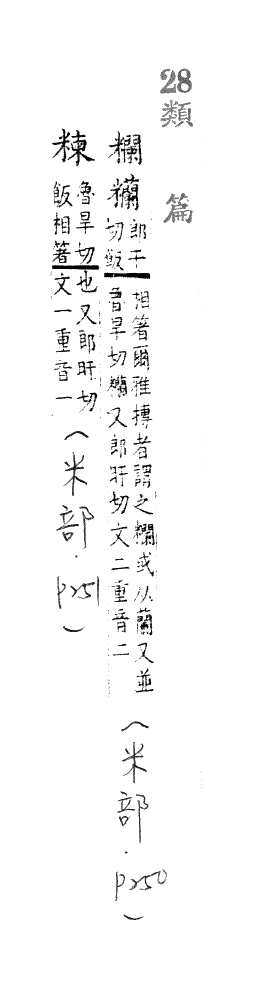 28類篇
糷𥽬郎干切飯相箸爾雅摶者謂之糷或从蘭又並魯旱切糷又郎旰切文二重音二（米部．p250）
㶕魯旱切飯相箸也又郎旰切文一重音一（米部．p251）